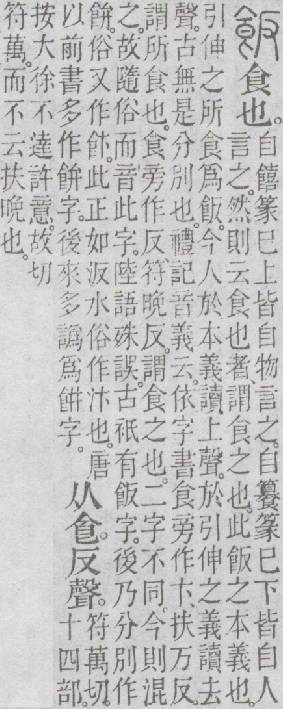 飯食也。自饎篆已上皆自物言之。自籑篆已下皆自人
言之。然則云食也者、謂食之也。此飯之本義也。
引伸之所食爲飯。今人於本義讀上聲。於引伸之義讀去
聲。古無是分別也。禮記音義云。依字書食旁作卞、扶万反。
謂所食也。食旁作反、符晚反。謂食之也。二字不同。今則混
之。故隨俗而音此字。陸語殊誤。古祇有飯字。後乃分別作
餅。俗又作飰。此正如汳水俗作汴也。唐
以前書多作餅字。後來多譌爲餠字。
从𠊊反聲。符萬切。
十四部。
按大徐不達許意。故切
符萬。而不云扶晚也。